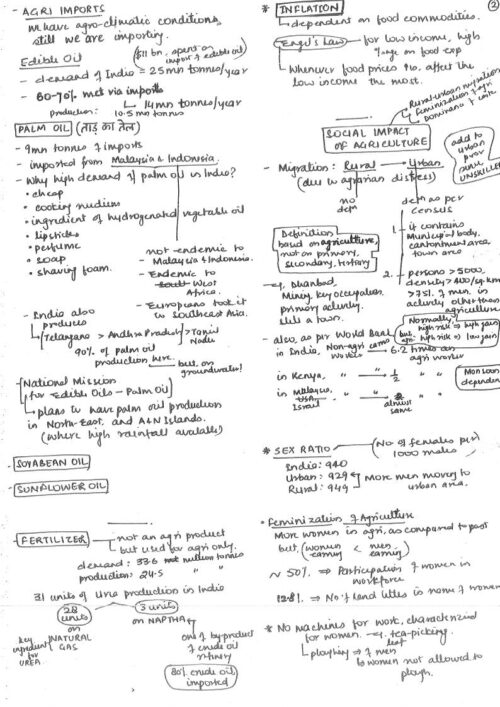 - AGRI IMPORTS
We have agro-climatic conditions,
still we are importing.
Edible Oil
$11 bn. spent on
import of edible oil
- demand of India = 25 mn tonnes/year
- 60-70% met via imports
↳ 14 mn tonnes/year
production: 10.5 mn tonnes
PALM OIL (ताड़ का तेल)
- 9mn tonnes of imports
- imported from Malaysia & Indonesia.
- Why high demand of palm oil in India?
• cheap
• cooking medium
• ingredient of hydrogenated vegetable oil
• lipsticks
• perfume
• soap
• shaving foam.
not-endemic to
- Malaysia & Indonesia.
- Endemic to
South West
Africa.
- Europeans took it
to Southeast Asia.
- India also
produces
Telangana > Andhra Pradesh > Tamil
Nadu
90% of palm oil
production here.
↳ but, on
groundwater!
- National Mission
for Edible Oils - Palm Oil
↳ plans to have palm oil production
in North-East, and A&N Islands.
(where high rainfall available)
- SOYABEAN OIL
- SUNFLOWER OIL
- FERTILIZER
not an agri product
but used for agri only.
demand: 33.6 million tonnes
production: 24.5 " "
31 units of Urea production in India
28
units
on
NATURAL
GAS
key
ingredient
for
UREA
3 units
on NAPTHA
one of by product
of crude oil
refinery
80% crude oil
imported
2
* INFLATION
↳ dependent on food commodities.
Engel's Law → for low income, high
%age on food exp
↳ Whenever food prices ↑se, affect the
low income the most.
Rural-urban migration
Feminization of agri
SOCIAL IMPACT
OF AGRICULTURE
add to
urban
poor
UNSKILLED
- Migration: Rural → Urban
(due to agrarian distress)
no
defn
defn as per
census
Definition
based on agriculture,
not on primary,
secondary, tertiary
1. it contains
Municipal body,
cantonment area,
town area
2. persons > 5000,
density > 400/sq.km
> 75% of men in
activity other than
agriculture
- eg. Dhanbad,
Mining key occupation
primary activity.
still a town.
Normally
high risk ⇒ high gain
but agri high risk ⇒ low gain
- also, as per World Bank
in India, Non-agri earns → 6.2 times an
worker agri worker
in Kenya, " " → 1/2 "
Monsoon
dependent
in Malaysia,
USA,
Israel " " → almost
same "
* SEX RATIO → (No. of females per
1000 males)
India: 940
Urban: 929
Rural: 949
More men moving to
urban area.
• Feminization of Agriculture
More women in agri, as compared to past
but, (women earning < men earning)
~ 50% ⇒ Participation of women in
workforce
12.8% ⇒ No. of land titles in name of women
* No machines for work, characterized
for women. → eg. tea-picking
leaf
↳ ploughing ⇒ of men
↳ women not allowed to
plough.